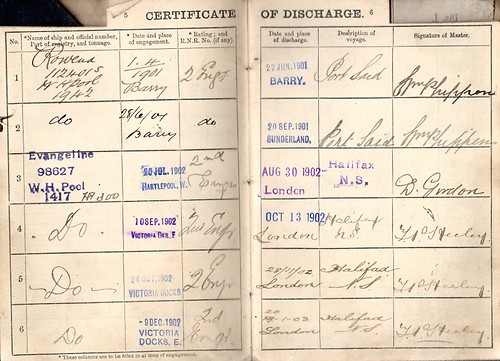 5 CERTIFICATE OF DISCHARGE. 6
No.
*Name of ship and official number, Port of registry, and tonnage.
Date and place of engagement.
*Rating; and R.N.R. No. (if any).
Date and place of discharge.
Description of voyage.
Signature of Master.
1
112401
W H Pool
1942
1.4
1901
Barry
2 Engr
22 JUN. 1901
BARRY.
Port Said
2
do
28/6/01
Barry
do
20 SEP. 1901
SUNDERLAND.
Port Said
3
Evangeline
98627
W.H. Pool
1417
HP 300
20 JUL. 1902
HARTLEPOOL, W.
2nd
Engr
AUG 30 1902
London
Halifax
N.S.
D. Gordon
4
Do.
10 SEP. 1902
VICTORIA DKS. E
2nd Engr
OCT 13 1902
London
Halifax
N.S.
5
Do
OCT. 1902
VICTORIA DOCKS
2 Engr
28/11/02
London
Halifax
N.S.
6
Do
-9 DEC. 1902
VICTORIA
DOCKS, E.
2nd
Engr
London
Halifax
N.S.
* These columns are to be filled in at time of engagement.